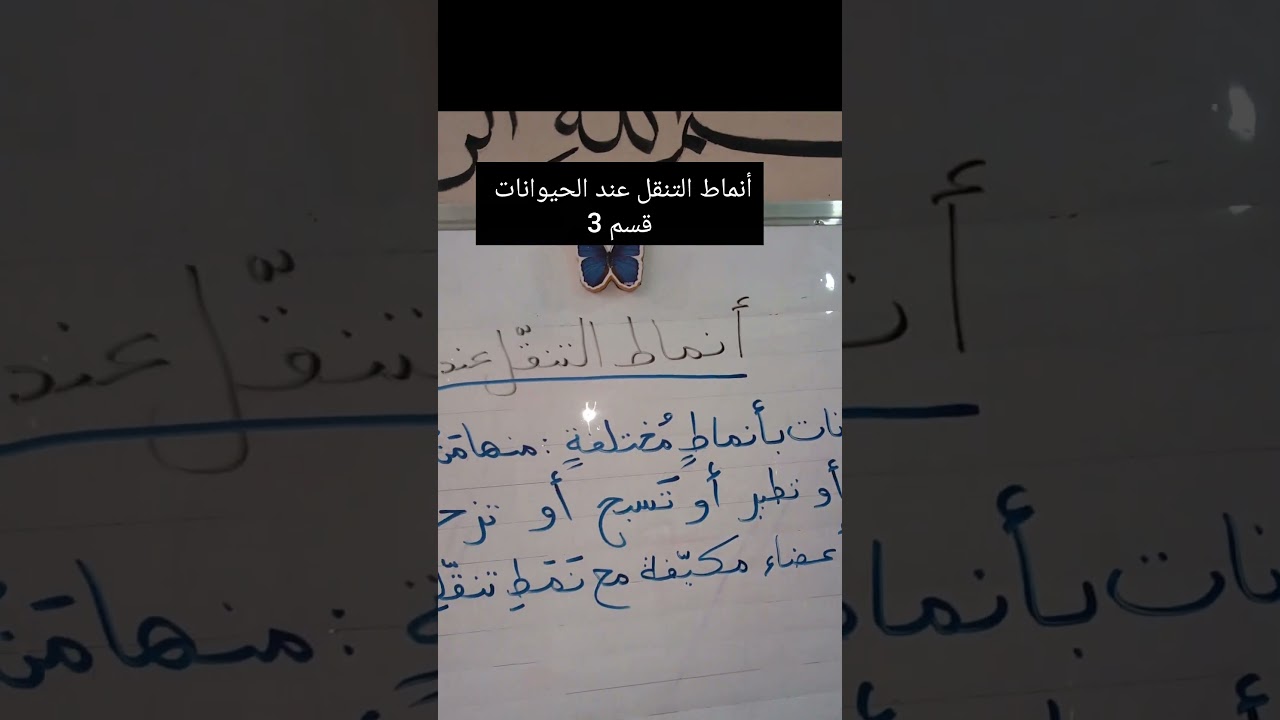 ـم اللهِ الر
أنماط التنقل عند الحيوانات
قسم 3
أنماط التنقّل عند
نات بأنماطٍ مُختلفةٍ : منها مَن
أو تطير أو تَسبح أو تزحـ
أعضاء مكيّفة مع نَمَطِ تنقّلـ